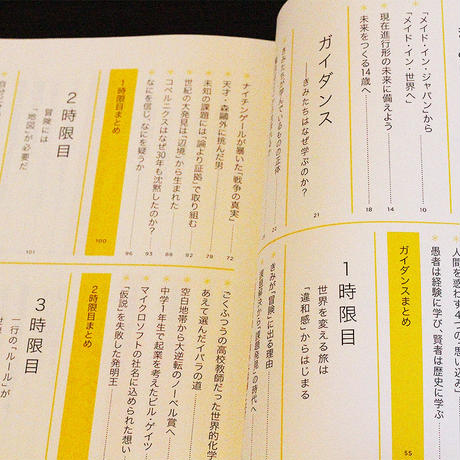 「メイド・イン・ジャパン」から
「メイド・イン・世界」へ 10
現在進行形の未来に備えよう 14
未来をつくる14歳へ 18
ガイダンス
きみたちはなぜ学ぶのか? 21
きみたちが学んでいるものの正体 22
人間を惑わす4つの「思い込み」
愚者は経験に学び、賢者は歴史に学ぶ
ガイダンスまとめ 55
1時限目
世界を変える旅は
「違和感」からはじまる
きみが「冒険」に出る理由
課題解決から「課題発見」の時代へ
ナイチンゲールが暴いた「戦争の真実」 72
天才・森鷗外に挑んだ男 78
未知の課題には「論より証拠」で取り組む
世紀の大発見は「辺境」から生まれた 88
コペルニクスはなぜ30年も沈黙したのか? 93
なにを信じ、なにを疑うか 96
1時限目まとめ 100
2時限目
冒険には
「地図」が必要だ 101
ごくふつうの高校教師だった世界的化学
あえて選んだイバラの道
空白地帯から大逆転のノーベル賞へ
中学1年生で起業を考えたビル・ゲイツ
マイクロソフトの社名に込められた想い
「仮説」を失敗した発明王
2時限目まとめ
3時限目
一行の「ルール」が